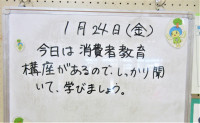 1月24日(金)
今日は消費者教育
講座があるので、しっかり聞
いて、学びましょう。